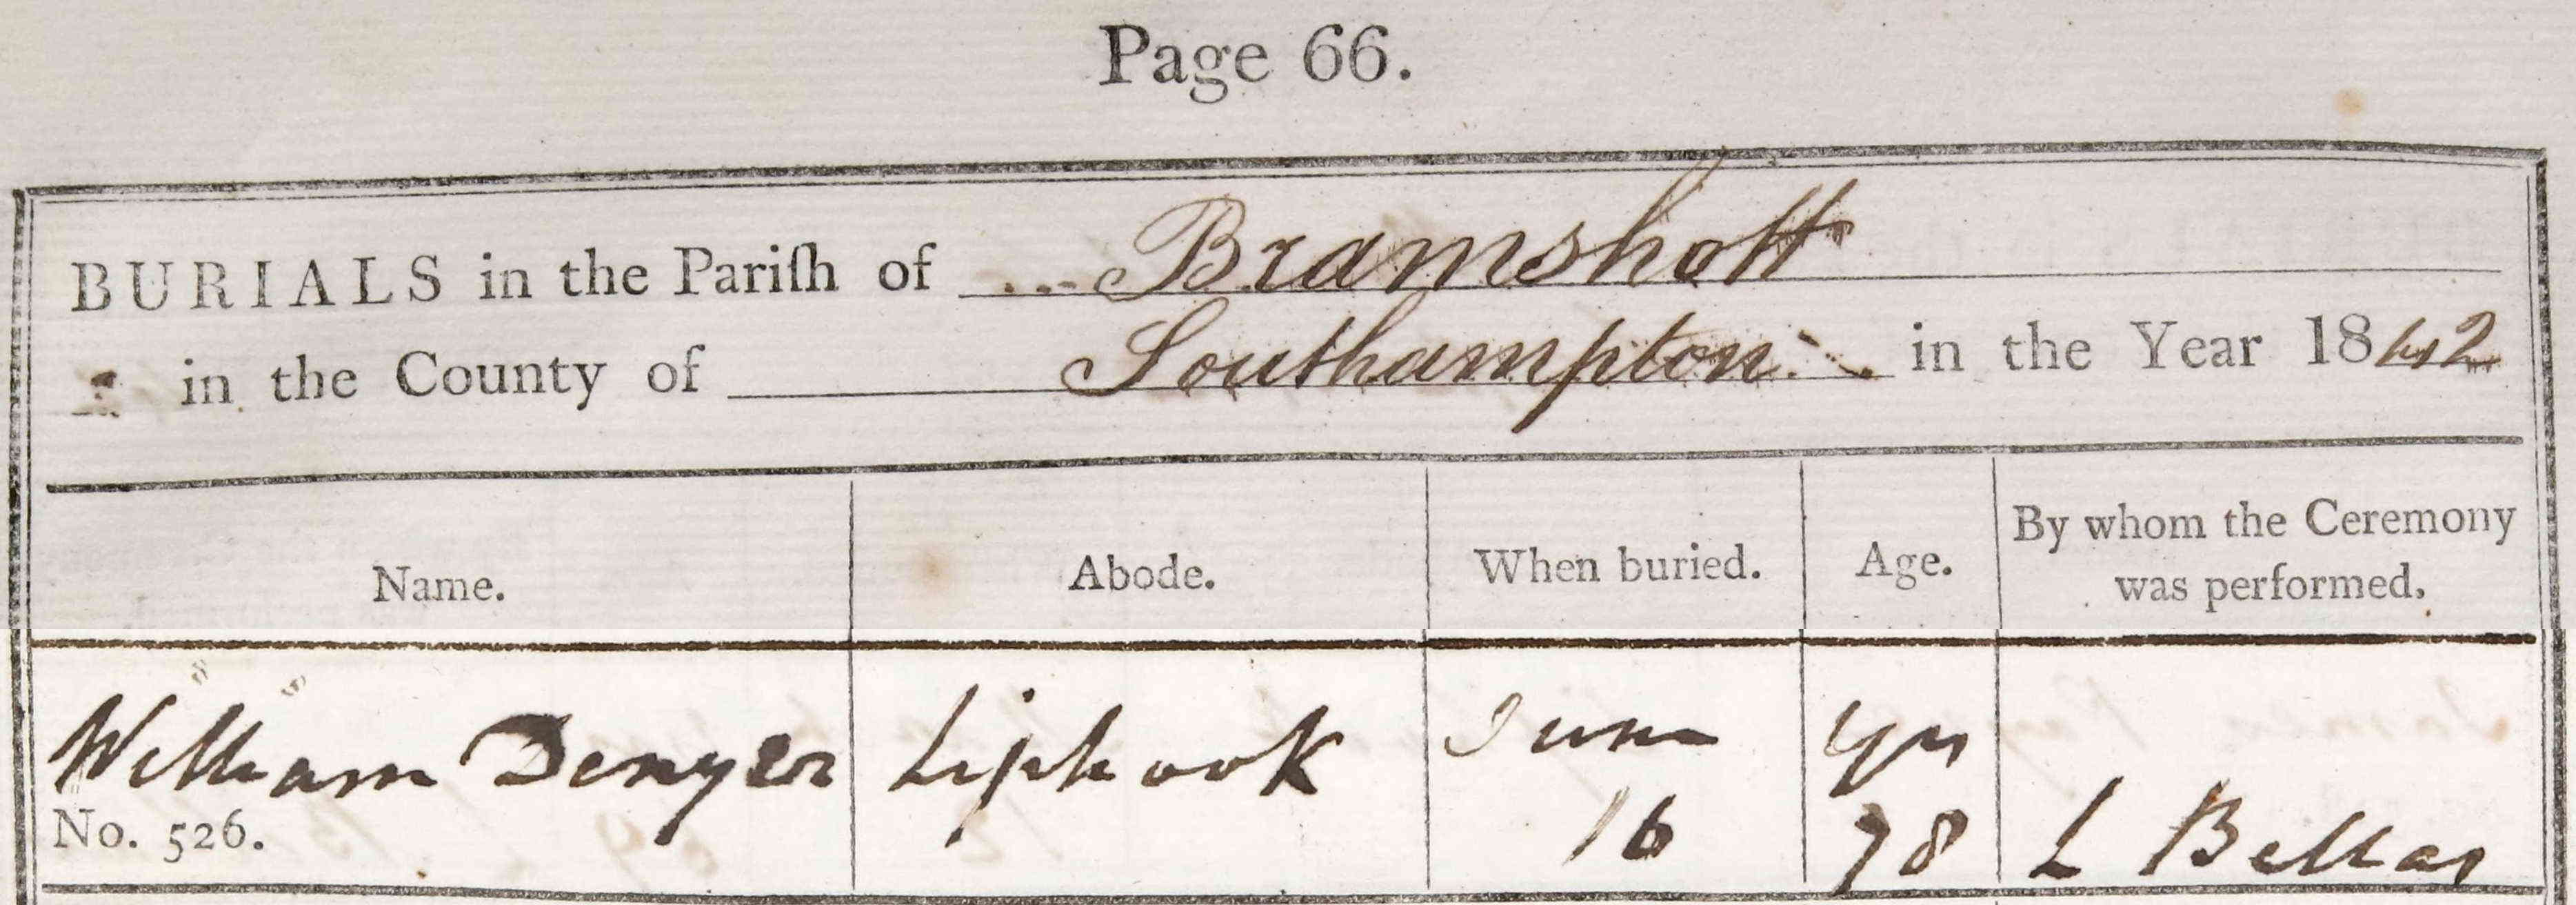 Page 66.
BURIALS in the Pariſh of Bramshott
in the County of Southampton in the Year 1842
Name. Abode. When buried. Age. By whom the Ceremony was performed.
William Denyer Liphook June yrs
No. 526. 16 78 L Bellas